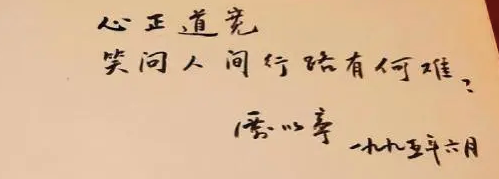 心正道宽
笑问人间行路有何难？
以亭 一九九五年六月